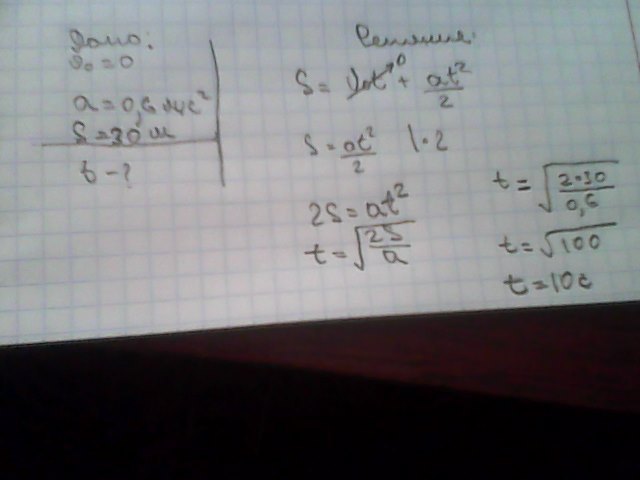 Дано:
v₀ = 0
a = 0,6 м/с²
S = 30 м
t - ?
Решение:
S = v₀t⁰ + at²/2
S = at²/2 | · 2
2S = at²
t = √(2S/a)
t = √(2·30/0,6)
t = √100
t = 10с